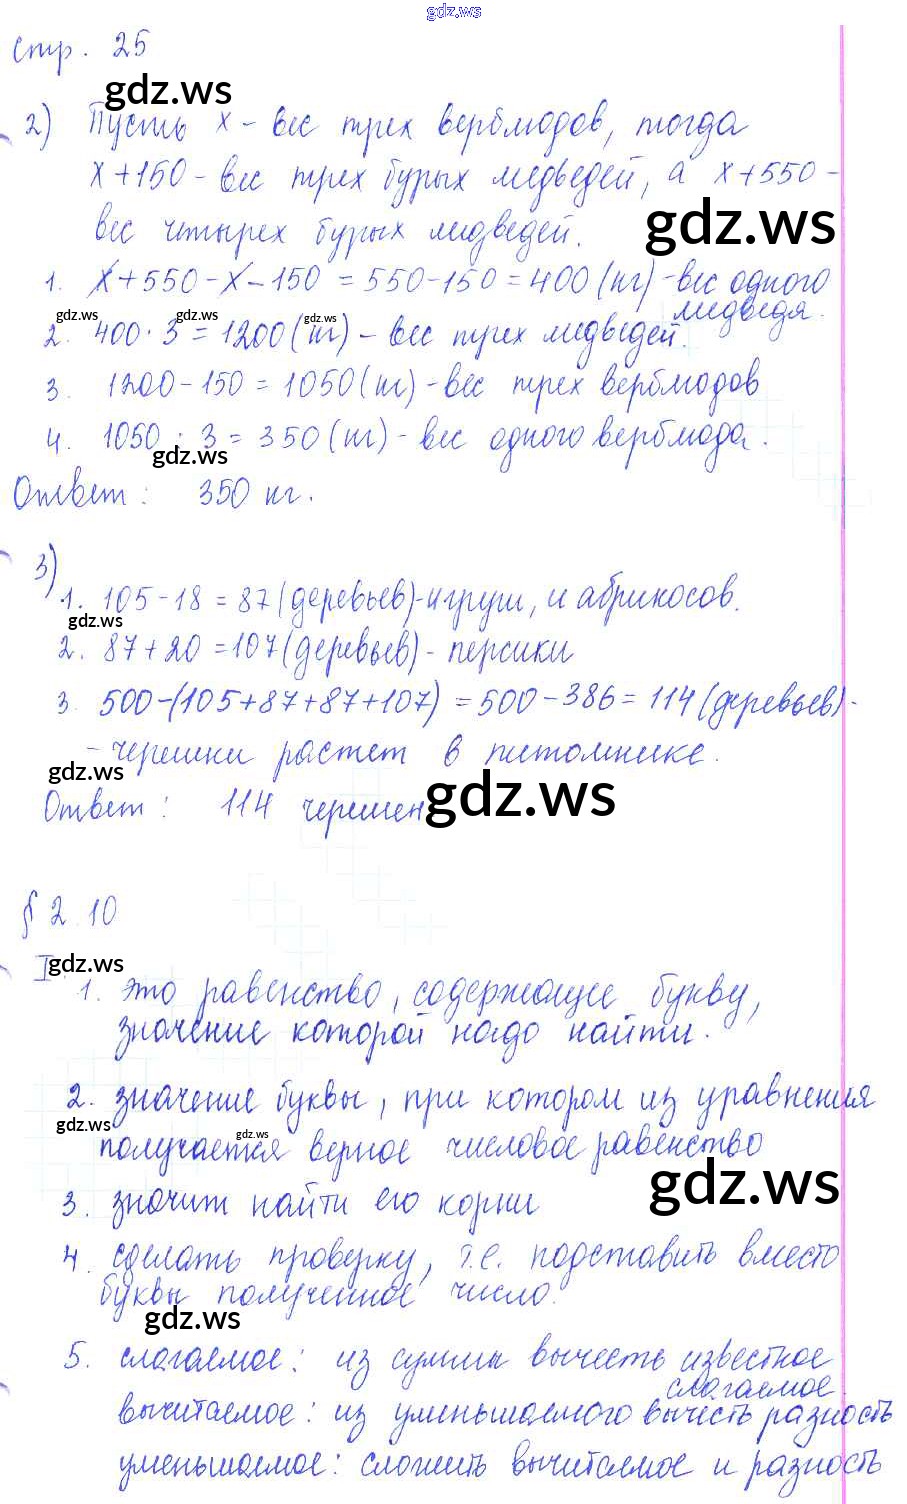 gdz.ws
стр. 25
gdz.ws
2) Пусть х - вес трех верблюдов, тогда
х+150 - вес трех бурых медведей, а х+550 -
gdz.ws
вес четырех бурых медведей.
1. х+550-х-150 = 550-150 = 400 (кг) - вес одного
медведя.
gdz.ws gdz.ws gdz.ws
2. 400·3 = 1200 (кг) - вес трех медведей.
3. 1200-150 = 1050 (кг) - вес трех верблюдов
4. 1050 : 3 = 350 (кг) - вес одного верблюда.
gdz.ws
Ответ: 350 кг.
3)
1. 105-18 = 87 (деревьев) - игруш, и абрикосов.
gdz.ws
2. 87+20 = 107 (деревьев) - персики
3. 500-(105+87+87+107) = 500-386 = 114 (деревьев) -
- черешни растет в питомнике.
gdz.ws gdz.ws
Ответ: 114 черешен
§ 2.10
gdz.ws
I. 1. это равенство, содержащее букву,
значение которой надо найти.
2. значение буквы, при котором из уравнения
gdz.ws gdz.ws
получается верное числовое равенство
gdz.ws
3. значит найти его корни
4. сделать проверку, т.е. подставить вместо
буквы полученное число.
gdz.ws
5. слагаемое: из суммы вычесть известное
слагаемое.
вычитаемое: из уменьшаемого вычесть разность
уменьшаемое: сложить вычитаемое и разность